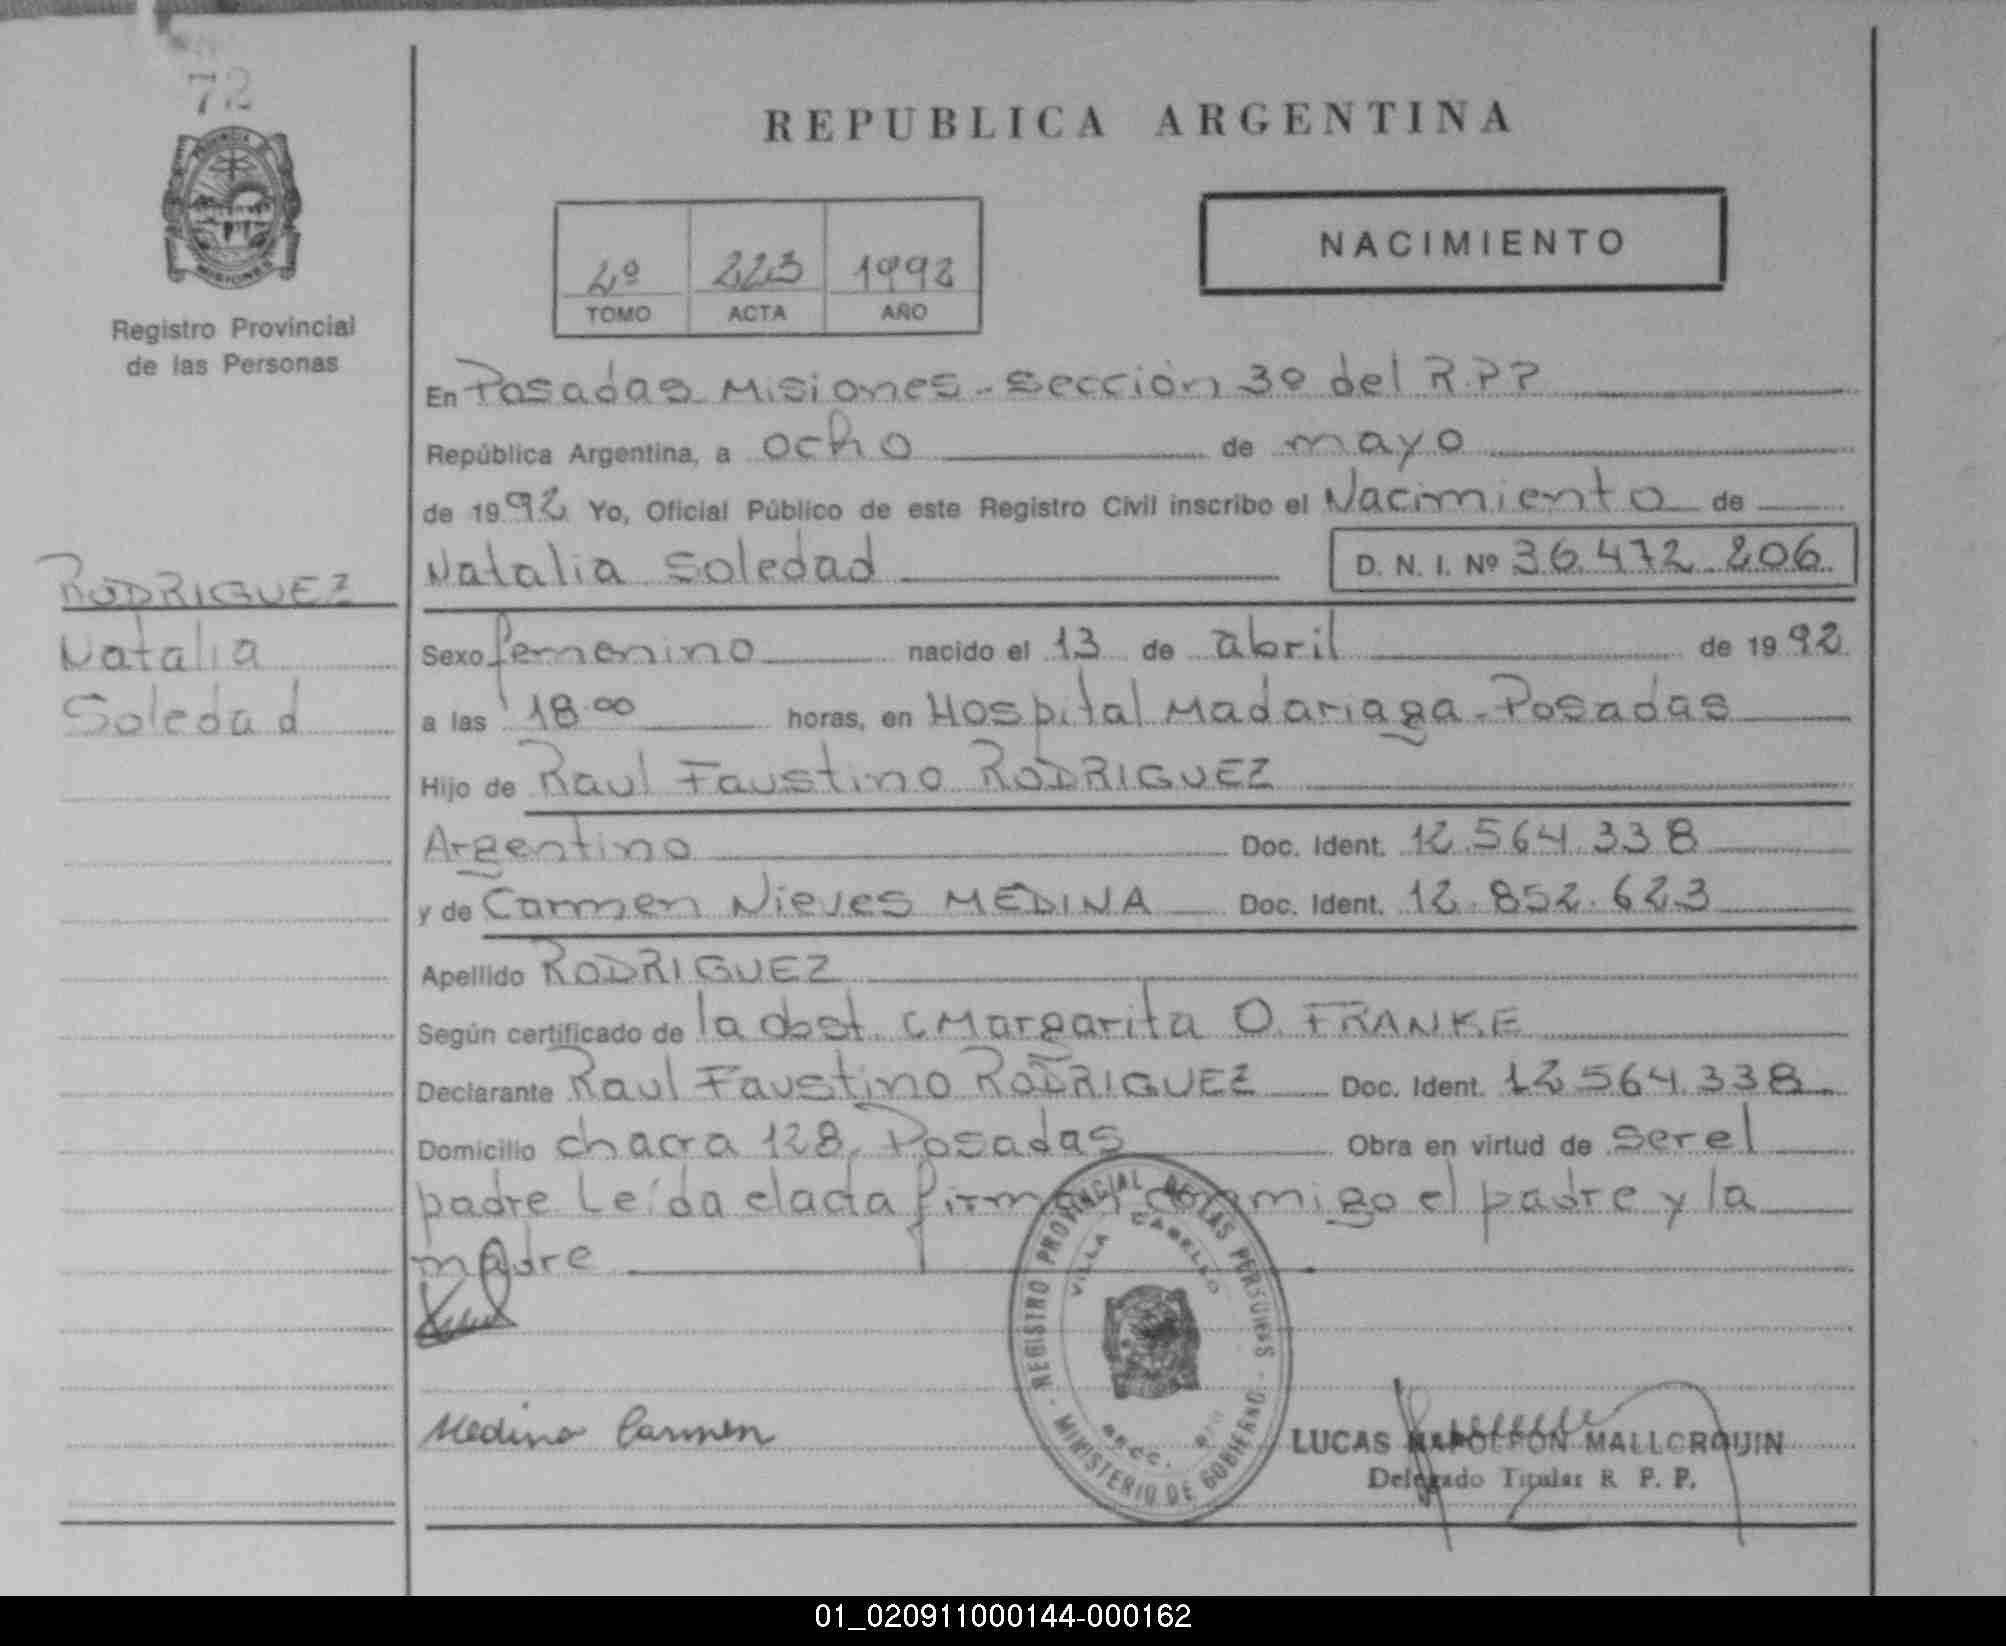 72
PROVINCIA DE
MISIONES
Registro Provincial
de las Personas
RODRIGUEZ
Natalia
Soledad
REPUBLICA ARGENTINA
2º 223 1992
TOMO ACTA AÑO
NACIMIENTO
En Posadas Misiones - sección 3º del R.P.P
República Argentina, a ocho de mayo
de 1992 Yo, Oficial Público de este Registro Civil inscribo el Nacimiento de
Natalia Soledad D. N. I. Nº 36.472.206
Sexo femenino nacido el 13 de abril de 1992
a las 18.00 horas, en Hospital Madariaga - Posadas
Hijo de Raul Faustino RODRIGUEZ
Argentino Doc. Ident. 12.564.338
y de Carmen Nieves MEDINA Doc. Ident. 12.852.623
Apellido RODRIGUEZ
Según certificado de la obst. Margarita O. FRANKE
Declarante Raul Faustino RODRIGUEZ Doc. Ident. 12.564.338
Domicilio chacra 128, Posadas Obra en virtud de ser el
padre Leída el acta firman conmigo el padre y la
madre
REGISTRO PROVINCIAL DE LAS PERSONAS - MINISTERIO DE GOBIERNO -
VILLA CABELLO
SECC.
Medina Carmen
LUCAS NAPOLEON MALLORQUIN
Delegado Titular R. P. P.
01_020911000144-000162